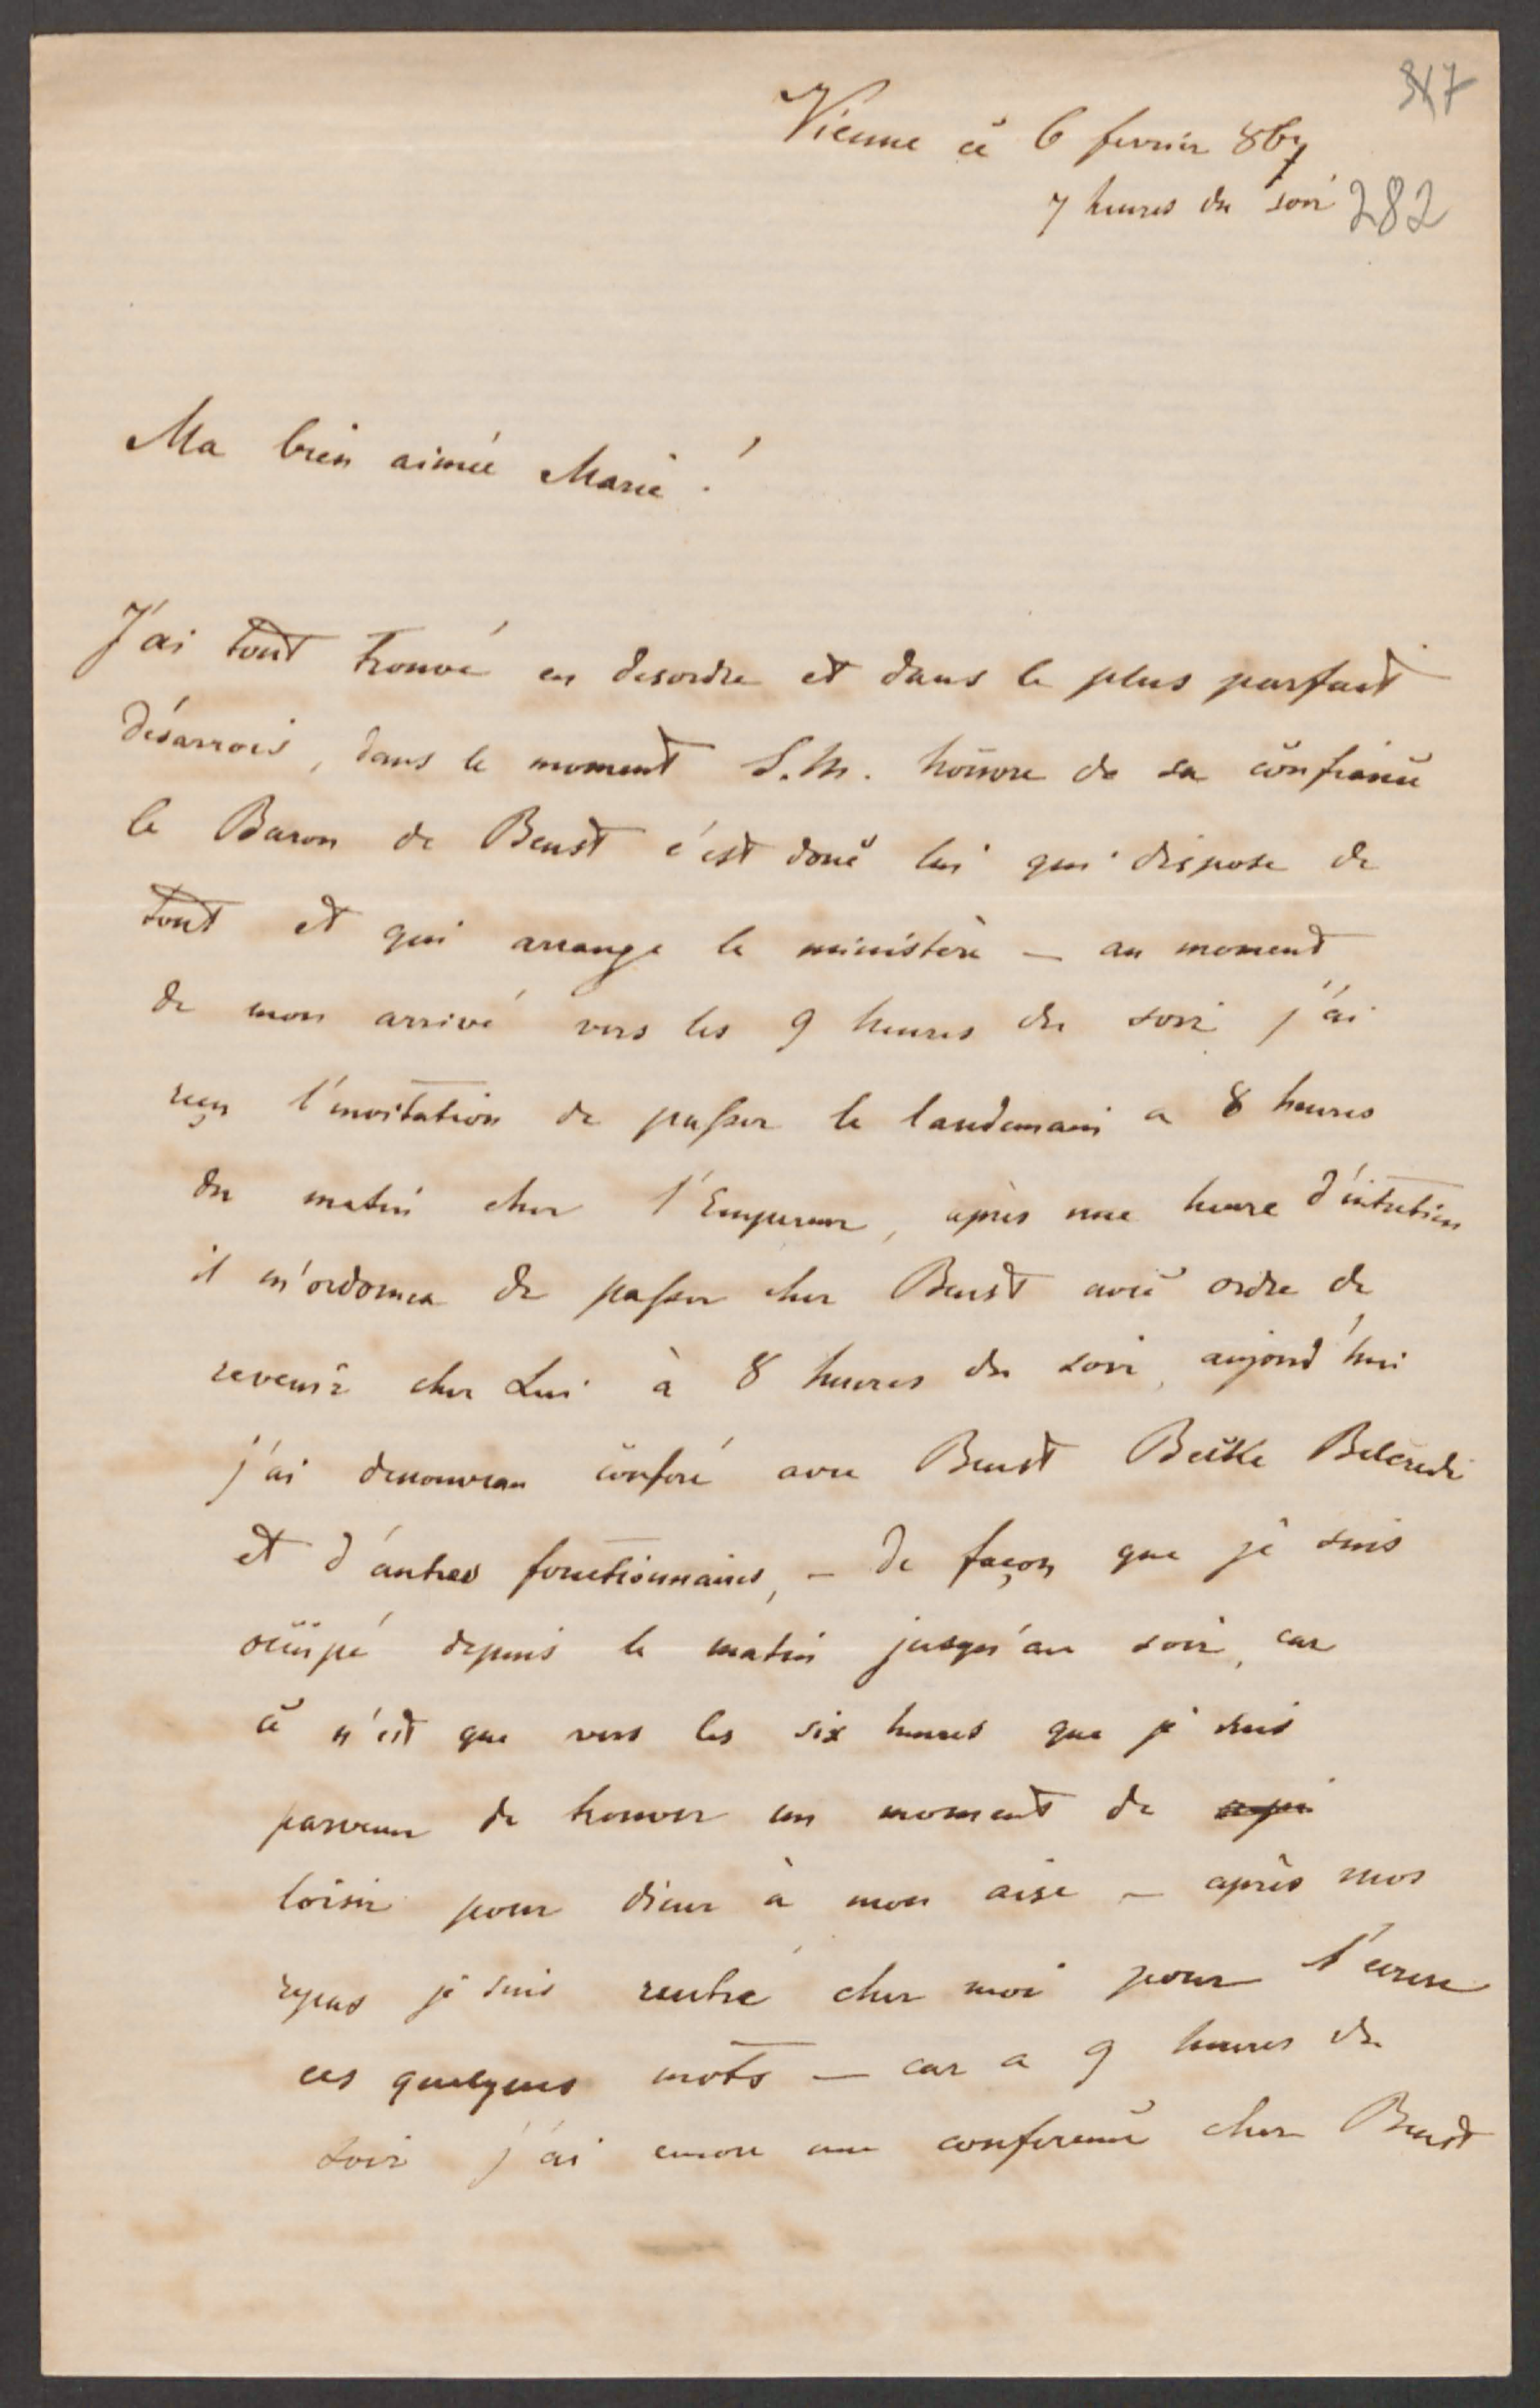 347
Vienne ce 6 fevrier 867
7 heures du soir
282
Ma bien aimée Marie !
J'ai tout trouvé en desordre et dans le plus parfait
désarrois, dans le moment S. M. honore de sa confiance
le Baron de Beust c'est donc lui qui dispose de
tout et qui arrange le ministère — au moment
de mon arrivé vers les 9 heures du soir j'ai
reçu l'invitation de passer le landemain a 8 heures
du matin chez l'Empereur, après une heure d'entretien
il m'ordonna de passer chez Beust avec ordre de
revenir chez Lui à 8 heures du soir, aujourd'hui
j'ai denouveau conferé avec Beust Becke Belcredi
et d'autres fonctionnaires, — de façon que je suis
occupé depuis le matin jusqu'au soir, car
ce n'est que vers les six heures que je suis
parvenu de trouver un moment de
loisir pour diner à mon aise — après mos
repas je suis rentré chez moi pour t'ecrire
ces quelques mots — car a 9 heures du
soir j'ai encore une conference chez Beust